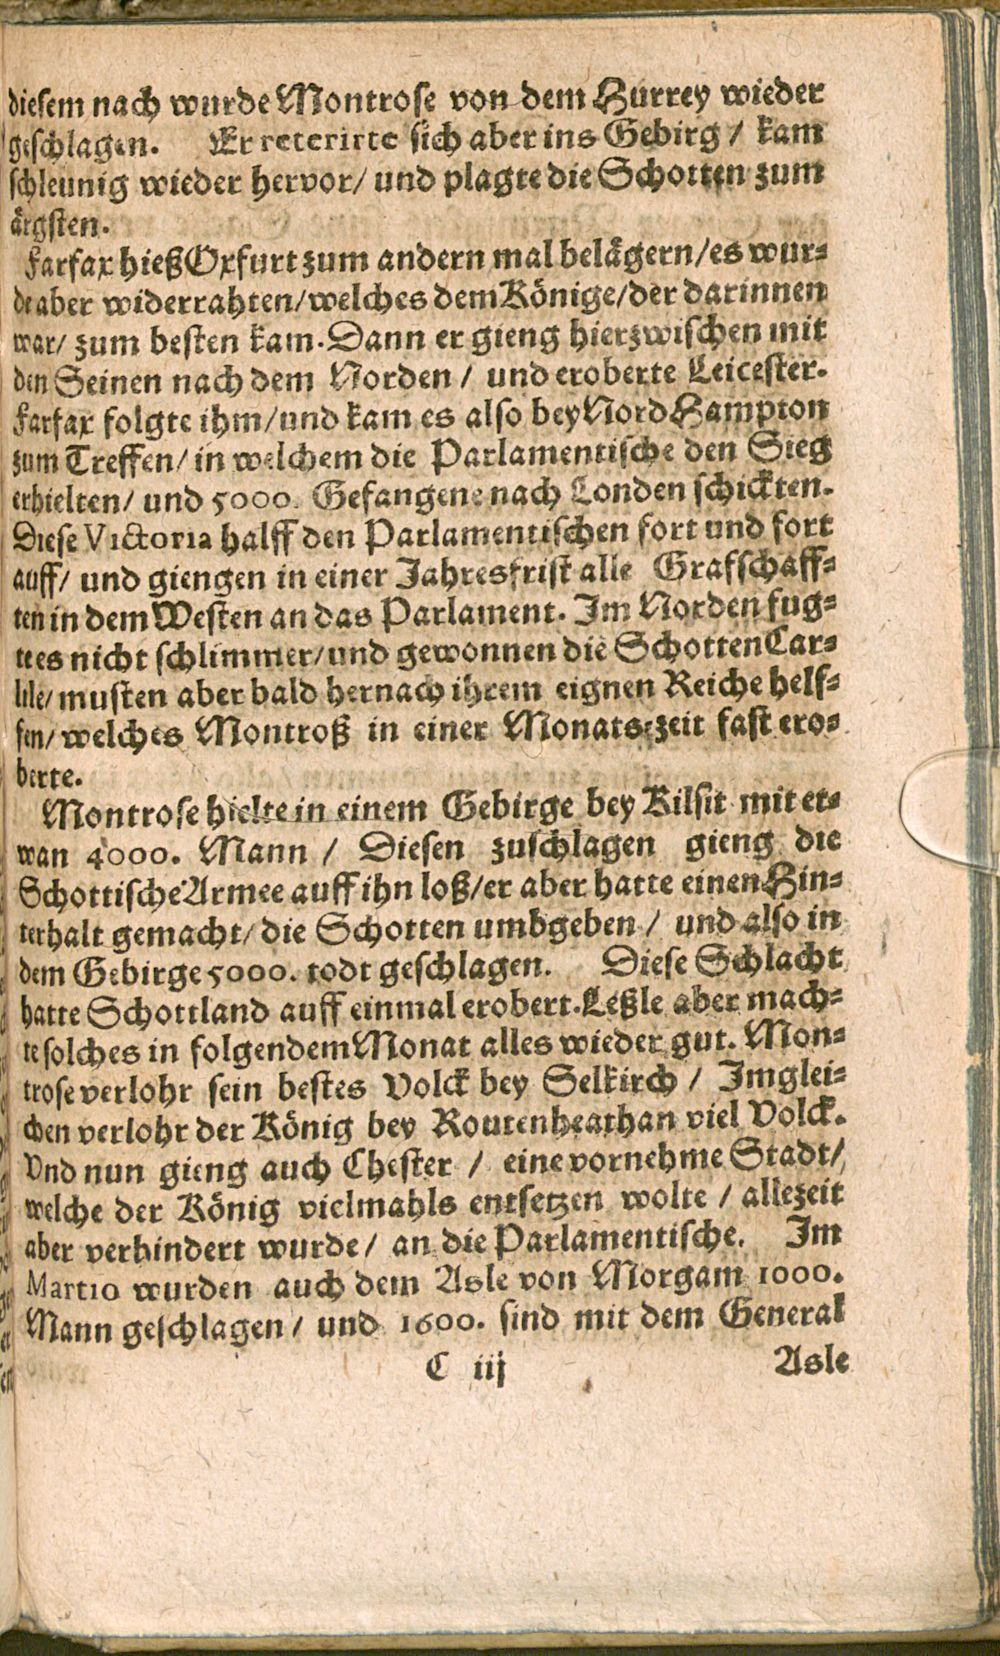 diesem nach wurde Montrose von dem Hurrey wieder
geschlagen. Er reterirte sich aber ins Gebirg / kam
schleunig wieder hervor / und plagte die Schotten zum
ärgsten.
Farfax hieß Oxfurt zum andern mal belägern / es wur-
de aber widerrahten / welches dem Könige / der darinnen
war / zum besten kam. Dann er gieng hierzwischen mit
den Seinen nach dem Norden / und eroberte Leicester.
Farfax folgte ihm / und kam es also bey Nord Hampton
zum Treffen / in welchem die Parlamentische den Sieg
erhielten / und 5000. Gefangene nach Londen schickten.
Diese Victoria halff den Parlamentischen fort und fort
auff / und giengen in einer Jahresfrist alle Grafschaff-
ten in dem Westen an das Parlament. Im Norden fug-
te es nicht schlimmer / und gewonnen die Schotten Car-
lile / musten aber bald hernach ihrem eignen Reiche helf-
fen / welches Montroß in einer Monats-zeit fast ero-
berte.
Montrose hielte in einem Gebirge bey Kilsit mit et-
wan 4000. Mann / Diesen zuschlagen gieng die
Schottische Armee auff ihn loß / er aber hatte einen Hin-
terhalt gemacht / die Schotten umbgeben / und also in
dem Gebirge 5000. todt geschlagen. Diese Schlacht
hatte Schottland auff einmal erobert. Leßle aber mach-
te solches in folgendem Monat alles wieder gut. Mon-
trose verlohr sein bestes Volck bey Selkirch / Imglei-
chen verlohr der König bey Routenheathan viel Volck.
Vnd nun gieng auch Chester / eine vornehme Stadt /
welche der König vielmahls entsetzen wolte / allezeit
aber verhindert wurde / an die Parlamentische. Im
Martio wurden auch dem Asle von Morgam 1000.
Mann geschlagen / und 1600. sind mit dem General
C iij Asle